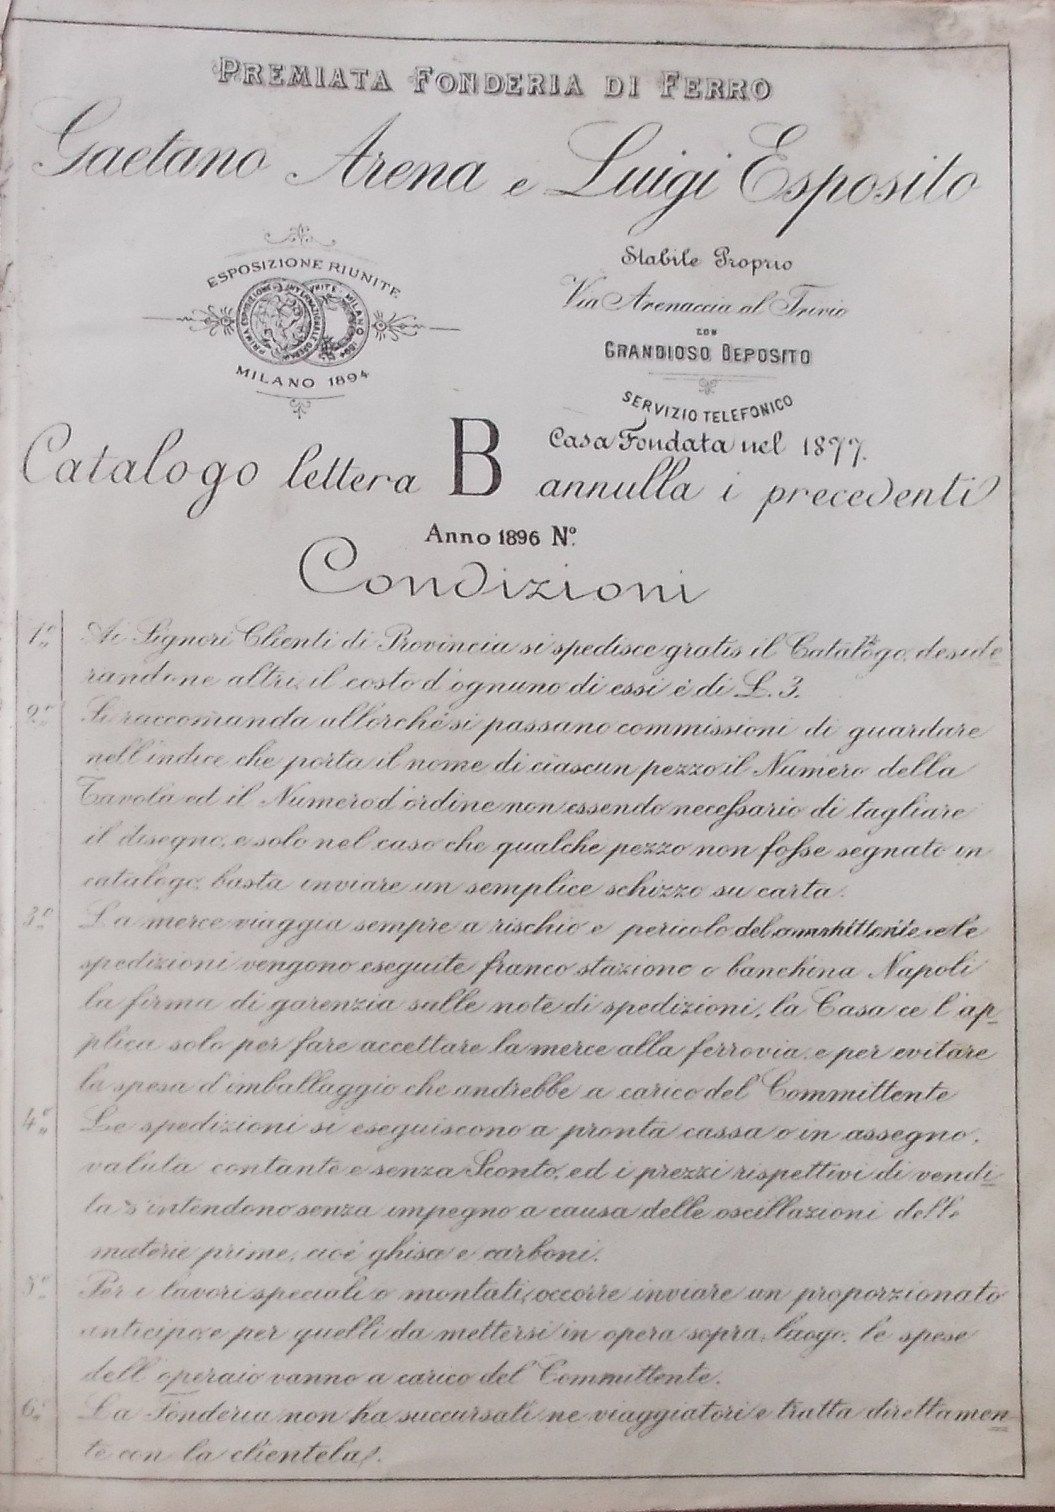 PREMIATA FONDERIA DI FERRO
Gaetano Arena e Luigi Esposito
ESPOSIZIONE RIUNITE
MILANO 1894
Stabile Proprio
Via Arenaccia al Trivio
CON
GRANDIOSO DEPOSITO
SERVIZIO TELEFONICO
Casa Fondata nel 1877.
Catalogo lettera B annulla i precedenti
Anno 1896 Nº.
Condizioni
1º Ai Signori Clienti di Provincia si spedisce gratis il Catalogo, deside
randone altri, il costo d'ognuno di essi è di L. 3.
2º Si raccomanda allorchè si passano commissioni di guardare
nell'indice che porta il nome di ciascun pezzo il Numero della
Tavola ed il Numero d'ordine non essendo necessario di tagliare
il disegno, e solo nel caso che qualche pezzo non fosse segnato in
catalogo, basta inviare un semplice schizzo su carta.
3º La merce viaggia sempre a rischio e pericolo del committente e le
spedizioni vengono eseguite franco stazione o banchina Napoli
la firma di garenzia sulle note di spedizioni, la Casa ce l'ap=
plica solo per fare accettare la merce alla ferrovia, e per evitare
la spesa d'imballaggio che andrebbe a carico del Committente
4º Le spedizioni si eseguiscono a pronta cassa o in assegno,
valuta contante e senza Sconto, ed i prezzi rispettivi di vendi=
ta s'intendono senza impegno a causa delle oscillazioni delle
materie prime, cioè ghisa e carboni.
5º Per i lavori speciali o montati, occorre inviare un proporzionato
anticipo, e per quelli da mettersi in opera sopra luogo, le spese
dell'operaio vanno a carico del Committente.
6º La Fonderia non ha succursali ne viaggiatori e tratta direttamen=
te con la clientela.